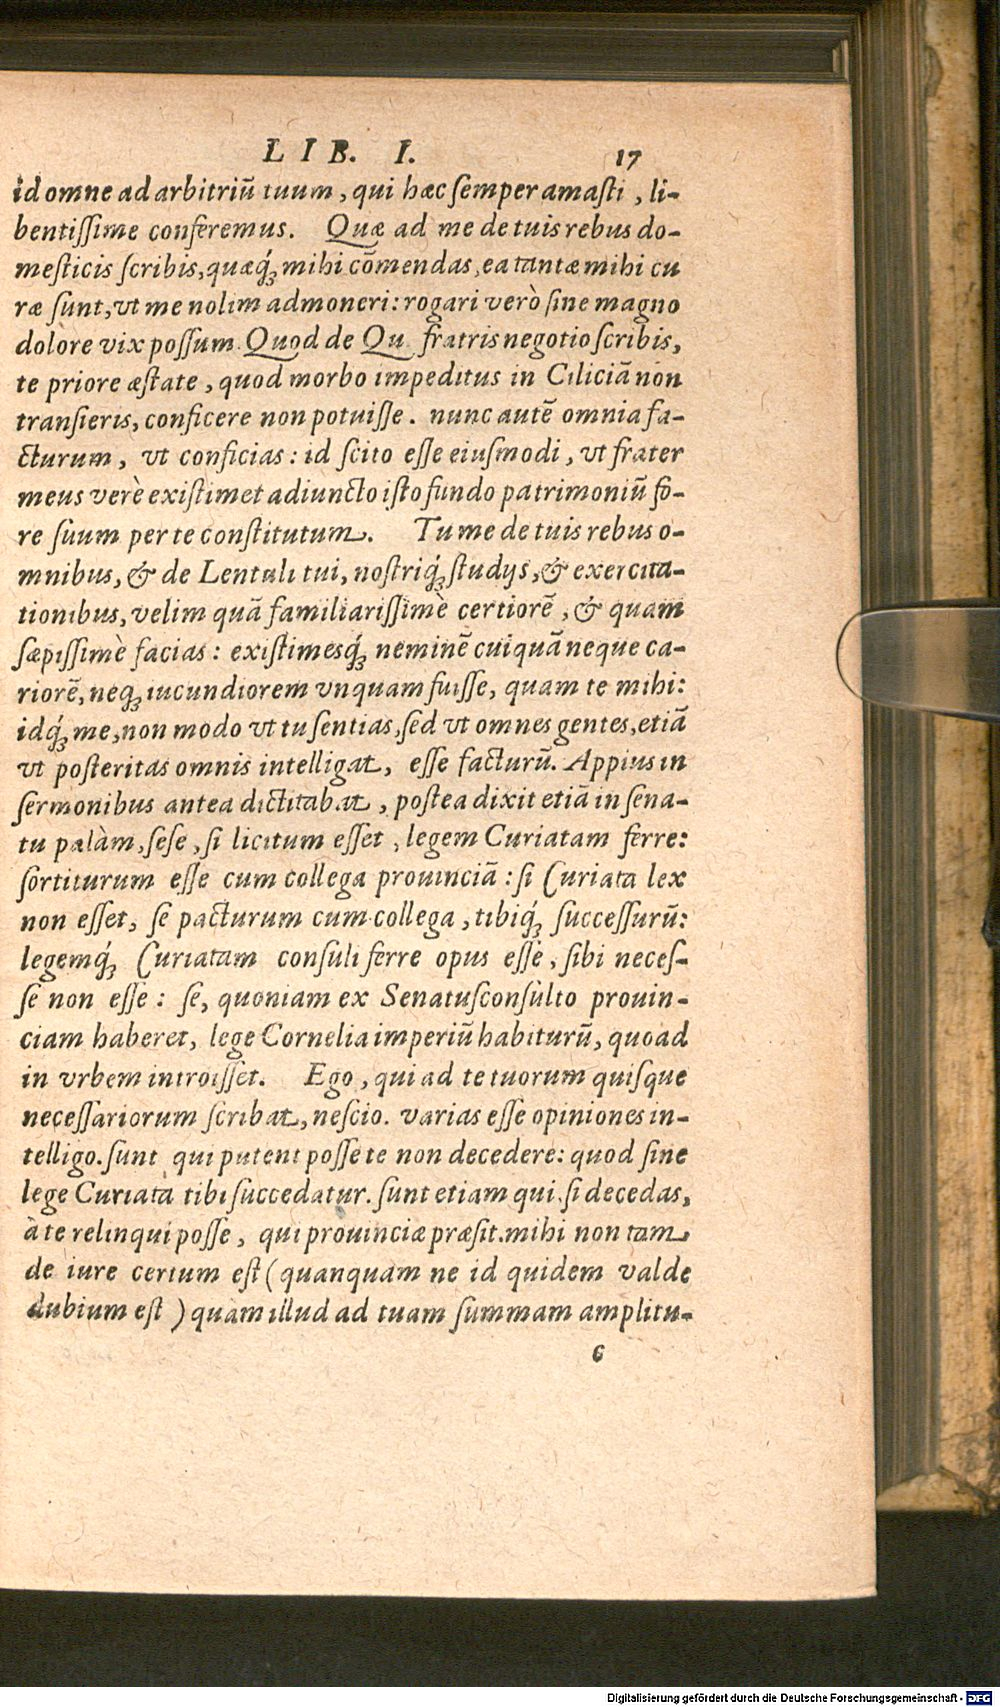 LIB. I. 17
id omne ad arbitriũ tuum, qui hæc ſemper amaſti, li-
bentiſſime conferemus. Quæ ad me de tuis rebus do-
meſticis ſcribis, quæq́ꝫ mihi cõmendas, ea tantæ mihi cu
ræ ſunt, vt me nolim admoneri: rogari verò ſine magno
dolore vix poſſum. Quod de Qu. fratris negotio ſcribis,
te priore æſtate, quod morbo impeditus in Ciliciã non
tranſieris, conficere non potuiſſe. nunc autẽ omnia fa-
cturum, vt conficias: id ſcito eſſe eiuſmodi, vt frater
meus verè exiſtimet adiuncto iſto fundo patrimoniũ fo-
re ſuum per te conſtitutum. Tu me de tuis rebus o-
mnibus, & de Lentuli tui, noſtriq́ꝫ ſtudijs, & exercita-
tionibus, velim quã familiariſſimè certiorẽ, & quam
ſæpiſſimè facias: exiſtimesq́ꝫ neminẽ cuiquã neque ca-
riorẽ, neqꝫ iucundiorem vnquam fuiſſe, quam te mihi:
idq́ꝫ me, non modo vt tu ſentias, ſed vt omnes gentes, etiã
vt poſteritas omnis intelligat, eſſe facturũ. Appius in
ſermonibus antea dictitabat, poſtea dixit etiã in ſena-
tu palàm, ſeſe, ſi licitum eſſet, legem Curiatam ferre:
ſortiturum eſſe cum collega prouinciã: ſi Curiata lex
non eſſet, ſe pacturum cum collega, tibiq́ꝫ ſucceſſurũ:
legemq́ꝫ Curiatam conſuli ferre opus eſſe, ſibi neceſ-
ſe non eſſe: ſe, quoniam ex Senatusconſulto prouin-
ciam haberet, lege Cornelia imperiũ habiturũ, quoad
in vrbem introiſſet. Ego, qui ad te tuorum quiſque
neceſſariorum ſcribat, neſcio. varias eſſe opiniones in-
telligo. ſunt qui putent poſſe te non decedere: quod ſine
lege Curiata tibi ſuccedatur. ſunt etiam qui, ſi decedas,
à te relinqui poſſe, qui prouinciæ præſit. mihi non tam
de iure certum eſt (quanquam ne id quidem valde
dubium eſt) quàm illud ad tuam ſummam amplitu-
c
Digitalisierung gefördert durch die Deutsche Forschungsgemeinschaft - DFG